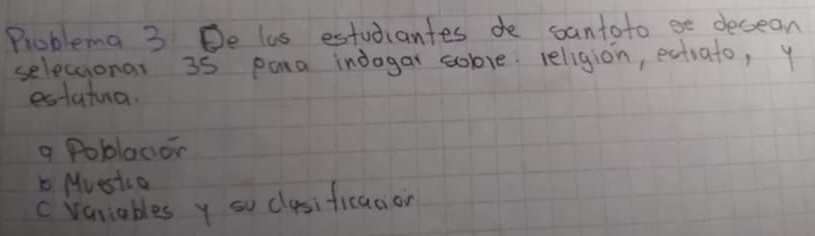 Problema 3 De los estudiantes de santoto se desean
seleccionar 35 para indagar sobre: religión, estrato, y
estatura.
a Población
b Muestra
c Variables y su clasificación